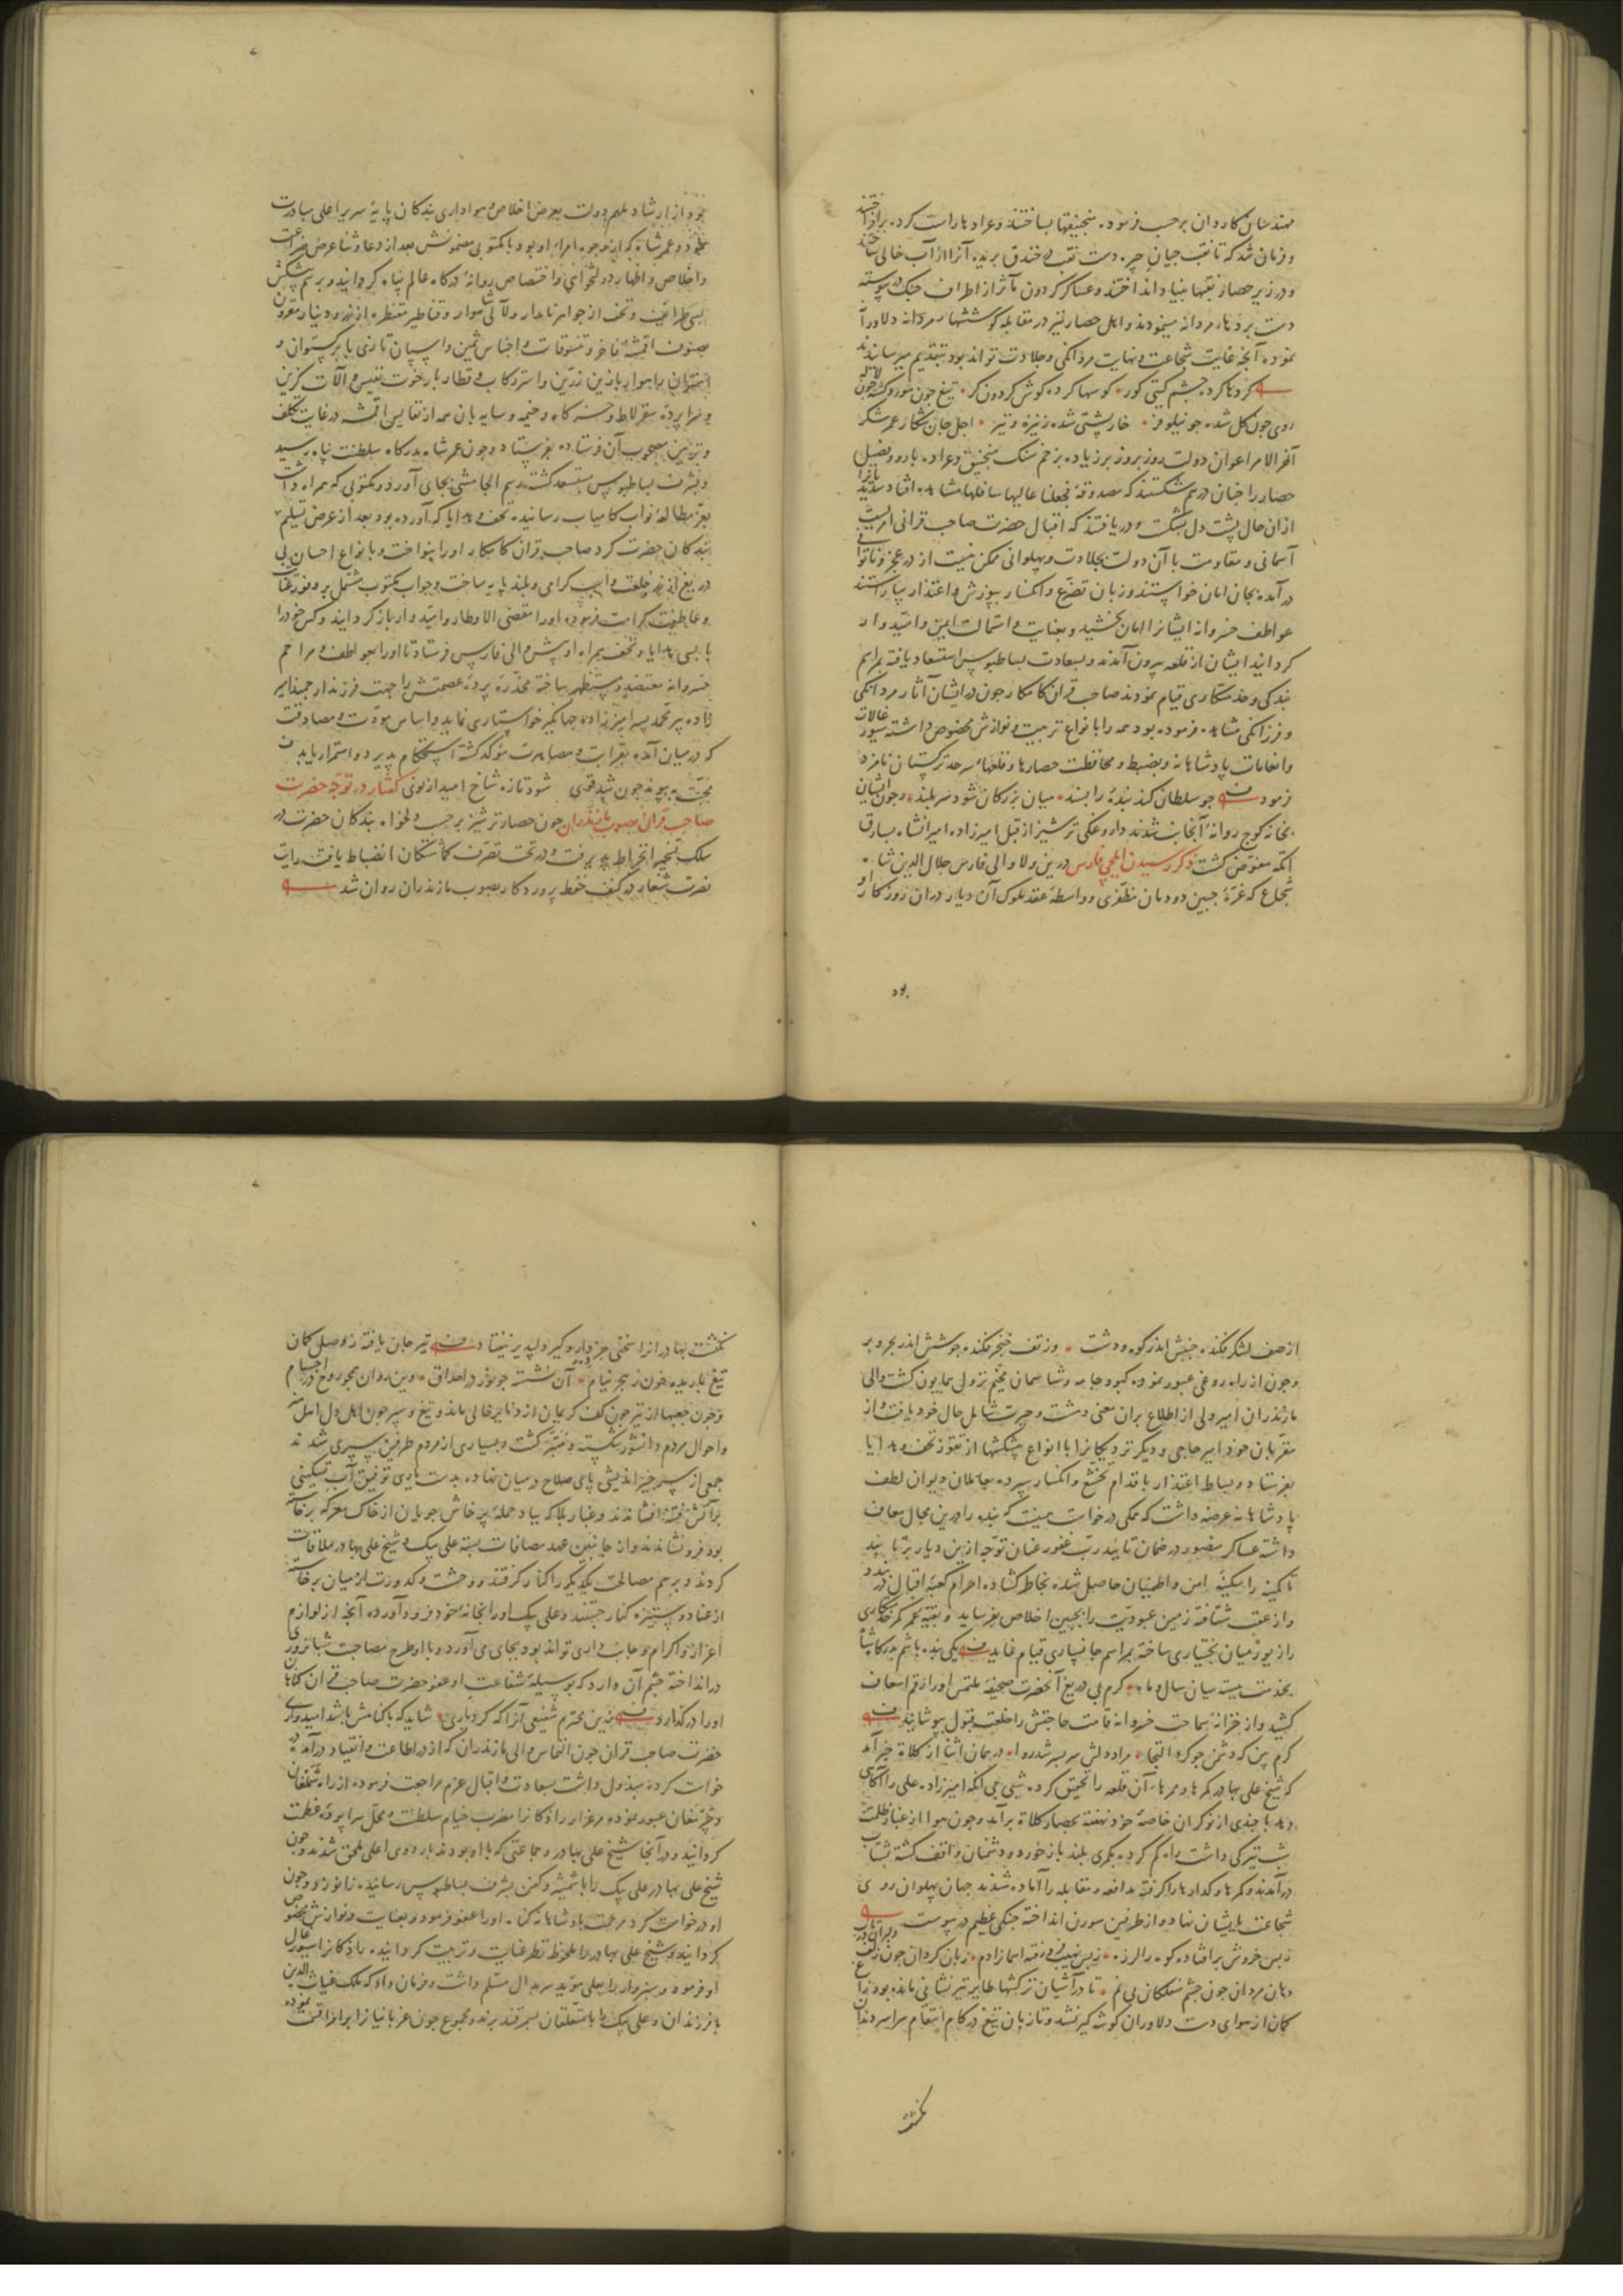 مهندسان کاردان برحسب فرموده منجنیقها بساختند و عرادها راست کرده برافراختند
و فرمان شد که تا نقب جیان چیره دست نقب و خندق بریده آنرا از آب خالی ساختند
و در زیر حصار نقبها بنیاد انداختند و عساکر گردون مآثر از اطراف جنک در پیوسته
دست بردهاء مردانه مینمودند و اهل حصار نیز در مقابله کوششهاء مردانه دلاورا
نموده آنچه غایت شجاعت و نهایت مردانکی و جلادت تواند بود بتقدیم میرسانیدند
کردها کرده چشم کیتی کور کوسها کرده کوش کردون کر تیغ چون
روی چون کل شده چو نیلوفر خارپشتی شده ز نیزه و تیر اجل جان شکار عمر شکر
آخرالامر اعوان دولت روز بروز برزیاده بزخم سنک منجنیق و عراده بارو و فصیل
حصار را چنان درهم شکستند که مصدوقهٔ فجعلنا عالیها سافلها مشاهده افتاد
ازان حال پشت دل بشکست و دریافتند که اقبال حضرت صاحب قرانی امریست
آسمانی و مقاومت با آن دولت بجلادت و پهلوانی ممکن نیست از در عجز و ناتوانی
در آمده بجان امان خواستند و زبان تضرع و انکسار بپوزش و اعتذار بیاراستند
عواطف خسروانه ایشانرا امان بخشید و بعنایت و استمالت ایمن و امیدوار
کردانید ایشان از قلعه بیرون آمدند و بسعادت بساط بوس استسعاد یافته بمراسم
بندکی و خدمتکاری قیام نمودند صاحب قران کامکار چون در ایشان آثار مردانکی
و فرزانکی مشاهده فرموده بود همه را بانواع تربیت و نوازش مخصوص داشته سیورغالات
و انعامات پادشاهانه و بضبط و محافظت حصارها و قلعهاء سرحد ترکستان نامزد
فرمود چو سلطان کند بندهٔ را پسند میان بزرکان شود سربلند و چون ایشان
بخانه کوچ روانهٔ آنجانب شدند داروغکی ترشیز از قبل امیرزاده امیرانشاه بسارق
اتکه مفوض کشت ذکر رسیدن ایلچی فارس درین ولا والی فارس جلال الدین شاه
شجاع که غرهٔ جبین دودمان مظفری و واسطهٔ عقد ملوک آن دیار در آن روزکار او
بود
بود از ارشاد ملهم دولت بعرض اخلاص و هواداری بندکان پایهٔ سریر اعلی مبادرت
نمود و عمر شاه که از وجوه امراء او بود با مکتوبی مضمونش بعد از دعا و ثنا عرض ضراعت
و اخلاص و اظهار دولتخواهی و اختصاص روانهٔ درکاه عالم پناه کردانید و برسم پیشکش
بسی طرایف و تحف از جواهر نامدار و لآلی شاهوار و قناطیر مقنطره از زر و دینار مقرون
بصنوف اقمشهٔ فاخر و تنسوقات و اجناس ثمین و اسپان تازی با برکستوان و
استران راهوار با زین زرین و استر رکاب و قطار بار رخوت نفیس و آلات کزین
و سراپردهٔ سقرلاط و خرکاه و خیمه و سایه بان همه از نفایس اقمشه در غایت تکلف
و تزیین مصحوب آن فرستاده بفرستاد و چون عمر شاه بدرکاه سلطنت پناه رسید
و بشرف بساطبوس مستسعد کشته رسم الجامشی بجای آورد و مکتوبی که همراه داشت
بعز مطالعهٔ نواب کامیاب رسانید و تحف و هدایا که آورده بود بعد از عرض تسلیم
بندکان حضرت کرد صاحب قران کامکار اورا بنواخت و بانواع احسان بی
دریغ از زر و خلعت و اسپ کرامی و بلند پایه ساخت و جواب مکتوب مشتمل بر وفور عنایت
و عاطفت کرامت فرموده اورا مقضی الاوطار و امیدوار باز کردانید و کس خودرا
با بسی هدایا و تحف همراه او پیش والی فارس فرستاد تا اورا بعواطف و مراحم
خسروانه معتضد و مستظهر ساخته مخدرهٔ پردهٔ عصمتش را جهت فرزند ارجمند امیر
زاده پیر محمد پسر امیرزاده جهانکیر خواستاری نماید و اساس مودت و مصادقت
که در میان آمده بقرابت و مصاهرت موکد کشته استحکام پذیرد و استمرار یابد
محبت به پیوند چون شد قوی شود تازه شاخ امید از نوی کفتار در توجه حضرت
صاحب قرانی بصوب مازندران چون حصار ترشیز برحسب دلخواه بندکان حضرت در
سلک تسخیر انخراط پذیرفت و در تحت تصرف کماشتکان انضباط یافت رایت
نصرت شعار در کنف حفظ پروردکار بصوب مازندران روان شد
از صف لشکر فکنده جنبش اندر کوه و دشت وز تف خنجر فکنده جوشش اندر بحر و بر
و چون از راه روغی عبور نموده کبود جامه و شاسمان مخیم نزول همایون کشت والی
مازندران امیر ولی از اطلاع بران معنی دهشت و حیرت شامل حال خود یافت و از
مقربان خود امیر حاجی و دیکر نزدیکانرا با انواع پیشکشها از تقوز تحف و هدایا
بفرستاد و بساط اعتذار باقدام تخشع و انکسار سپرده بعاملان دیوان لطف
پادشاهانه عرضه داشت که همکی درخواست همینست که بنده را درین مجال معاف
داشته عساکر منصور در ضمان تایید رب غفور عنان توجه ازین دیار برتابند
تا کمینه را سکینه امن و اطمینان حاصل شده بخاطر کشاده احرام کعبهٔ اقبال در بندد
و از عقب شتافته زمین عبودیت را بجبین اخلاص بفرساید و بقیهٔ عمر کمر خدمتکاری
را زیور میان بختیاری ساخته بمراسم جانسپاری قیام نماید یکی بنده باشم بدرکاه شاه
بخدمت ببسته میان سال و ماه کرم بی دریغ آنحضرت صحیفهٔ ملتمس اورا رقم اسعاف
کشید و از خزانهٔ سماحت خسروانه قامت حاجتش را خلعت قبول پوشانید
کرم بین که دشمن چو کرد التجا مراد دلش سر بسر شد روا در همان اثنا از کلاته خبر آمد
که شیخ علی بهادر کمرها و ممرهاء آن قلعه را تحقیق کرده شبی بی آنکه امیرزاده علی را آکاهی
دهد با چندی از نوکران خاصهٔ خود نهفته بحصار کلاته برآمد و چون هوا از غبار ظلمت
شب تیرکی داشت راه کم کرد بکمری بلند باز خورد و دشمنان واقف کشته بشتاب
درآمدند و کمرها و کدارها را کرفته مدافعه و مقابله را آماده شدند جهان پهلوان روی
شجاعت بایشان نهاد و از طرفین سورن انداخته جنکی عظیم در پیوست
زبس خروش برافتاده کوه را لرزه
دهان مردان چون چشم ممسکان بی نم تا در آشیان ترکشها طایر تیر نشانی مانده بود زاغ
کمان از هوای دست دلاوران کوشه کیر نشد و تا زبان تیغ در کام انتقام سراسر دندان
نکشت
نکشت بهادرانرا سختی جز دار و کیر دلپذیر نیفتاد تیر جان یافته ز وصل کمان
تیغ باریده خون ز هجر نیام آن نشسته چو نور در احداق وین روان همچو روح در اجسام
و چون جعبها از تیر چون کف کریمان از دنانیر خالی ماند و تیغ و سپر چون اهل دل
و احوال مردم دانشور شکسته و متغیر کشت و بسیاری از مردم طرفین سپری شدند
جمعی از سر خیر اندیشی پای صلاح در میان نهاده بدست یاری توفیق آب تسکینی
بر آتش فتنه افشاندند و غبار بلا که بباد حملهٔ پرخاش جویان از خاک معرکه برخاسته
بود فرو نشاندند و از جانبین عهد مصافات بسته علی بیک و شیخ علی بهادر ملاقات
کردند و برسم مصالحت یکدیکر را کنار کرفتند و وحشت و کدورت از میان برخاسته
از عناد و ستیزه کنار جستند و علی بیک اورا بخانهٔ خود فرود آورده آنچه از لوازم
اعزاز و اکرام و جانب داری تواند بود بجای می آورد و با او طرح مصاحبت شبانروزی
در انداخته چشم آن دارد که بوسیلهٔ شفاعت او عفو حضرت صاحب قران کناه
اورا در کذارد بدین محترم شفیعی آنرا که کرد یاری شاید که با کناهش باشد امیدواری
حضرت صاحب قران چون التماس والی مازندران که از در اطاعت و انقیاد درآمده
خواست کرده مبذول داشت بسعادت و اقبال عزم مراجعت فرموده از راه شملغان
و جرمغان عبور نموده مرغزار رادکانرا مضرب خیام سلطنت و محل سراپردهٔ عظمت
کردانید و در آنجا شیخ علی بهادر و جماعتی که با او بودند باردوی اعلی ملحق شدند و چون
شیخ علی بهادر علی بیک را با شمشیر و کفن بشرف بساطبوس رسانید زانو زد و چون
او درخواست کرد مرحمت پادشاهانه کناه اورا عفو فرمود و بعنایت و نوازش مخصوص
کردانید و شیخ علی بهادر را ملحوظ نظر عنایت و تربیت کردانیده رادکانرا سیورغال
او فرمود و سبزوار را بعلی موید سربدال مسلم داشت و فرمان داد که ملک غیاث الدین
با فرزندان و علی بیک را با متعلقان بسمرقند برند و مجموع جون غربانیانرا برانرا قسمت نموده